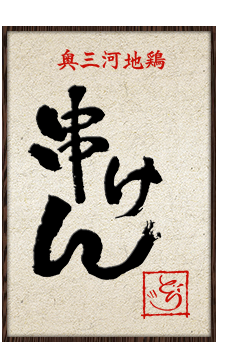 奥三河地鶏
串けん